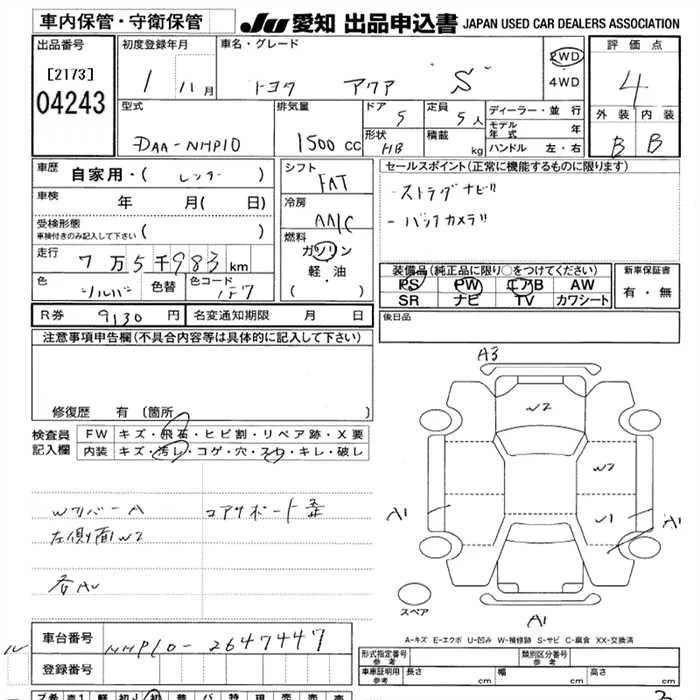 車内保管・守衛保管
JU 愛知 出品申込書 JAPAN USED CAR DEALERS ASSOCIATION
出品番号
[2173]
04243
初度登録年月
1 11月
車名・グレード
トヨタ アクア "S"
2WD
4WD
評価点
4
外装 内装
B B
型式
DAA-NHP10
排気量
1500 CC
ドア
5
定員
5人
形状
HB
積載
kg
ディーラー・並行
モデル年式 年
ハンドル 左・右
車歴
自家用・( レンタ )
車検
年 月( 日)
受検形態
車検付きのみ記入して下さい ( )
走行
7万5千983 km
色
シルバー
色替
色コード
1F7
シフト
FAT
冷房
AA/C
燃料
ガソリン
軽・油
( )
セールスポイント(正常に機能するものに限ります)
- ストラダナビ!!
- バックカメラ!!
装備品(純正品に限り○をつけてください)
PS PW エアB AW
SR ナビ TV カワシート
新車保証書
有・無
R券 9130 円
名変通知期限 月 日
後日品
注意事項申告欄(不具合内容等は具体的に記入して下さい)
修復歴 有〔箇所 〕
検査員記入欄
FW キズ・飛石・ヒビ割・リペア跡・X要
内装 キズ・汚レ・コゲ・穴・スレ・キレ・破レ
Wリバー A コアサポート歪
左側面W2
各AU
A3
W2
W2
A1
W1
A1
A1
スペア
A-キズ E-エクボ U-凹み W-補修跡 S-サビ C-腐食 XX-交換済
車台番号
NHP10-2647447
登録番号
形式指定番号 参考
類別区分番号 参考
車庫証明用 参考 長さ cm 幅 cm 高さ cm